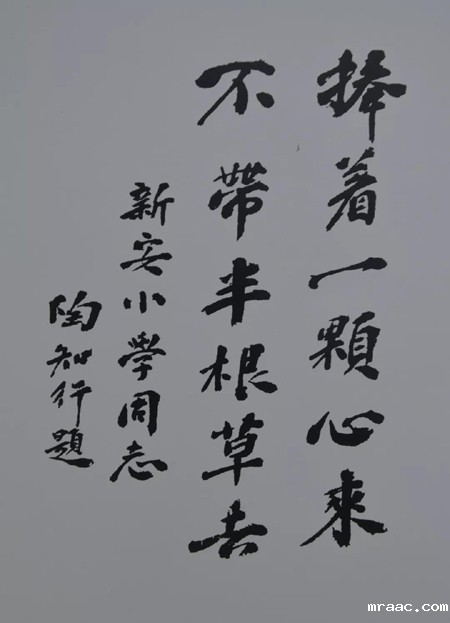 捧着一顆心來
不帶半根草去
新安小學同志
陶知行題
mraac.com